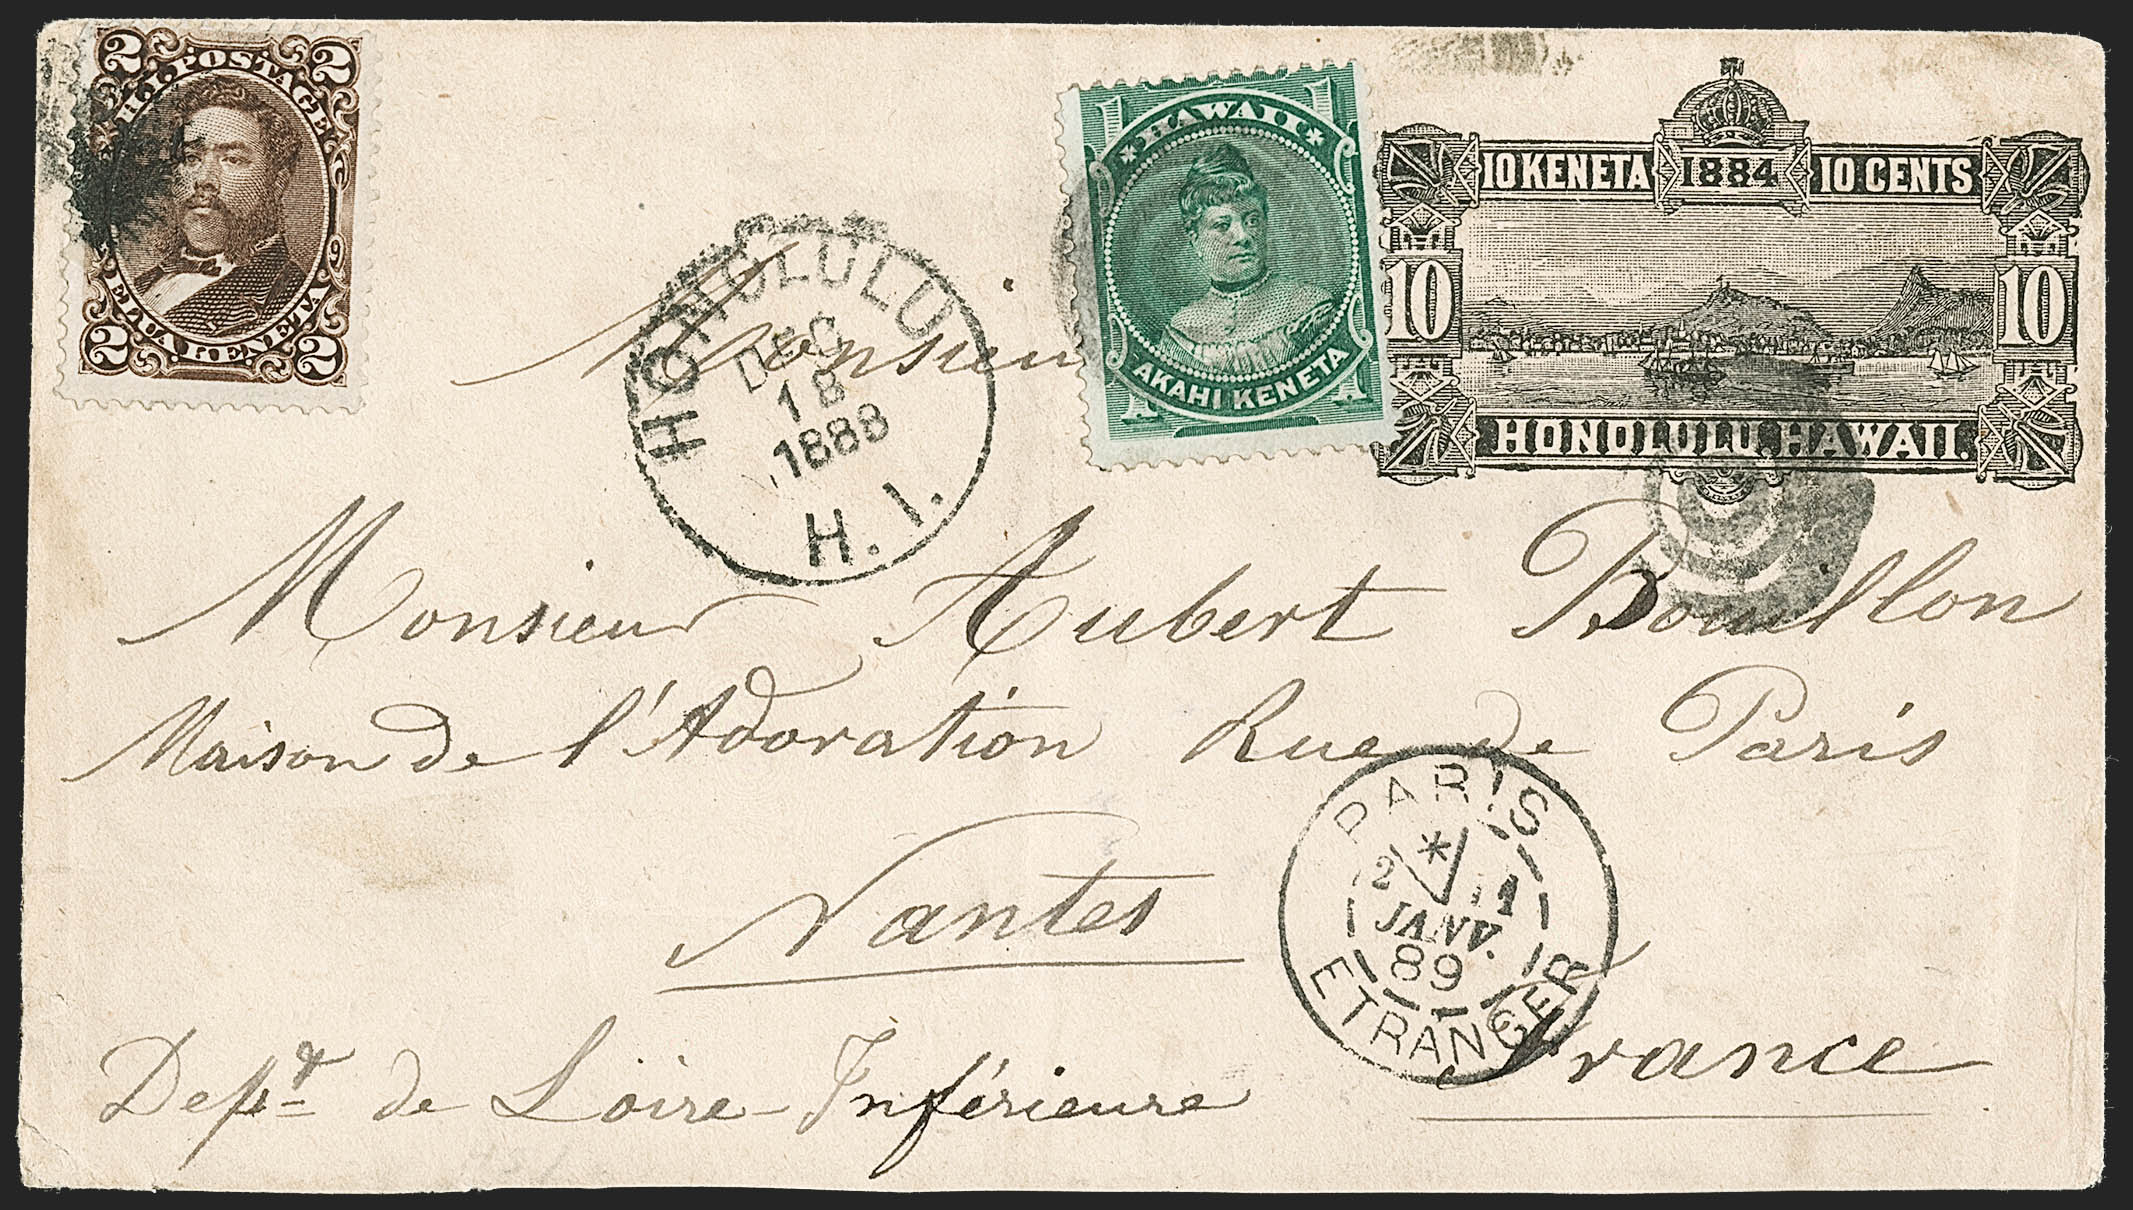 2 2
H.I. POSTAGE
ELUA KENETA
2 2
HAWAII
1 1
AKAHI KENETA
10 KENETA 1884 10 CENTS
10 10
HONOLULU, HAWAII.
HONOLULU
DEC
18
1888
H. I.
Monsieur
Monsieur Aubert Bouillon
Maison de l'Adoration Rue de Paris
Nantes
PARIS
*
JANV.
89
ETRANGER
Dept de Loire-Inférieure
France